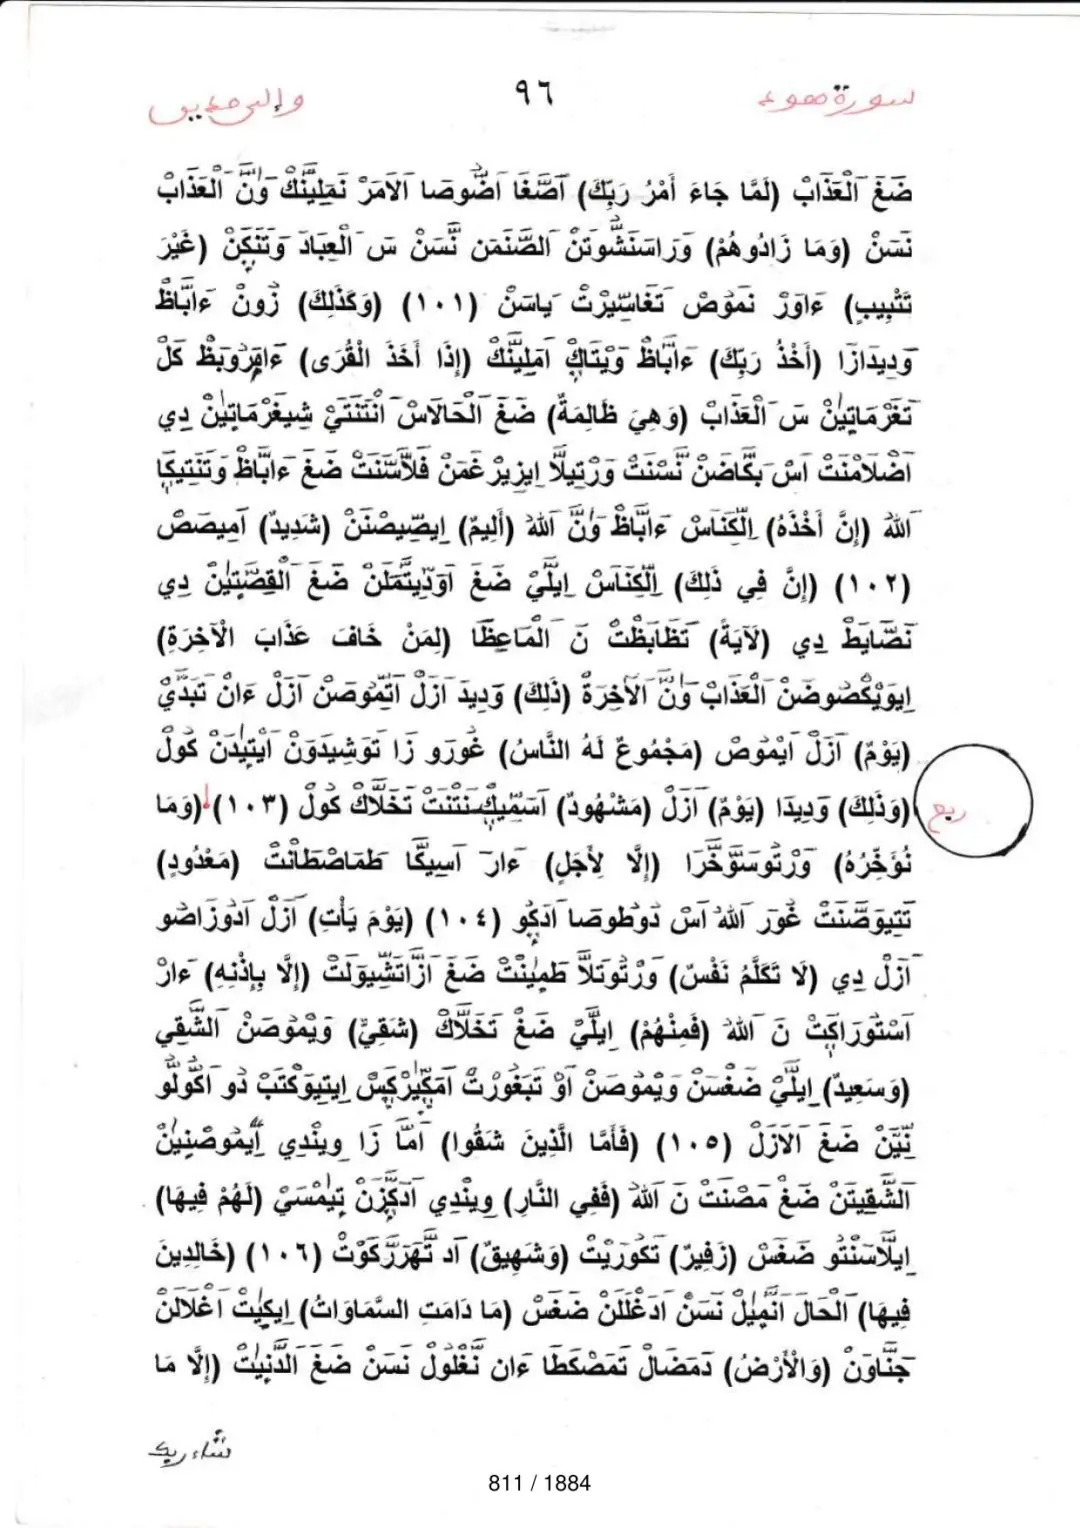 سورة هود
٩٦
وإلى مدين
ضَغَ الْعَذَابْ (لَمَّا جَاءَ أَمْرُ رَبِّكَ) اَضَّغَا اَضُّوصَا اَلاَمَرْ نَمَلِينَّكْ وَنَّ الْعَذَابْ
نَسَنْ (وَمَا زَادُوهُمْ) وَرَاسَنَشُّوتَنْ الصَّنَمَن نَّسَنْ سَ الْعِبَادَ وَتَنَكِنْ (غَيْرَ
تَتْبِيبٍ) ءَاوَرْ نَمُوصْ تَغَاسِّيرْتْ يَاسَنْ (١٠١) (وَكَذَلِكَ) زُونْ ءَابَّاظْ
وَدِيدَازَا (أَخْذُ رَبِّكَ) ءَابَّاظْ وَيْتَاكْ اَمَلِينَّكْ (إِذَا أَخَذَ الْقُرَى) ءَاقِرْوبَظْ كَلْ
تَغَرْمَاتِينْ سَ الْعَذَابْ (وَهِيَ ظَالِمَةٌ) ضَغَ الْحَالاَسْ اَنْتَنَتَيْ شِيغَرْمَاتِينْ دِي
اَضْلاَمْنَتْ اَسْ بَكَّاضَنْ نَّسْنَتْ وَرْتِيلاَّ اِيزِيرْغَمَنْ فَلاَّسْنَتْ ضَغَ ءَابَّاظْ وَتَنَتِيكَا
اللهُ (إِنَّ أَخْذَهُ) اِلْكَنَاسْ ءَابَّاظْ وَنَّ اللهُ (أَلِيمٌ) اِيصِّيصْنَنْ (شَدِيدٌ) اَمِيصَصْ
(١٠٢) (إِنَّ فِي ذَلِكَ) اِلْكَنَاسْ اِيلَيْ ضَغَ اَوَدِّيتَّمَلَنْ ضَغَ الْقِصَّتِينْ دِي
نَضَّايَظْ دِي (لَآيَةً) تَظَابَظْتْ نَ الْمَاعِظَا (لِمَنْ خَافَ عَذَابَ الْآخِرَةِ)
اِيوَيْكْصُوضَنْ الْعَذَابْ وَنَّ الآخِرَةْ (ذَلِكَ) وَدِيدَ اَزَلْ اَتَّمُوصَنْ اَزَلْ ءَانْ تَبَدَّيْ
(يَوْمٌ) اَزَلْ اَيْمُوصْ (مَجْمُوعٌ لَهُ النَّاسُ) غُورَو زَا تَوَشِيدَوَنْ اَيْتِيدَنْ كُولْ
(وَذَلِكَ) وَدِيدَا (يَوْمٌ) اَزَلْ (مَشْهُودٌ) اَسَمِّيكْسَنْتَنَتْ تَخَلاَّكْ كُولْ (١٠٣) (وَمَا
ربع
نُؤَخِّرُهُ) وَرْتُوسَوَّخَّرَا (إِلَّا لِأَجَلٍ) ءَارْ اَسِيكَّا طَمَاصْطَانْتْ (مَعْدُودٍ)
تَتِيوَضَّنَتْ غُورَ اللهُ اَسْ دُوطُوصَا اَدَكُو (١٠٤) (يَوْمَ يَأْتِ) اَزَلْ اَدُوزَاضُو
اَزَلْ دِي (لَا تَكَلَّمُ نَفْسٌ) وَرْتُوتَلاَّ طَمِينْتْ ضَغَ اَزَّاتَشِّيوَلَتْ (إِلَّا بِإِذْنِهِ) ءَارْ
اَسْتُورَاكِتْ نَ اللهُ (فَمِنْهُمْ) اِيلَيْ ضَغْ تَخَلاَّكْ (شَقِيٌّ) وَيْمُوصَنْ الشَّقِي
(وَسَعِيدٌ) اِيلَيْ ضَغْسَنْ وَيْمُوصَنْ اَوْ تَبَغُورْتْ اَمَكِيرْكِسْ اِيتِيوَكْتَبْ دُو اَكُولُو
نِّيَنْ ضَغَ اَلاَزَلْ (١٠٥) (فَأَمَّا الَّذِينَ شَقُوا) اَمَّا زَا وِينْدِي اَيْمُوصْنِينْ
الشَّقِيتَنْ ضَغْ مَصْنَتْ نَ اللهُ (فَفِي النَّارِ) وِينْدِي اَدَكِزَنْ تِيمْسَيْ (لَهُمْ فِيهَا)
اِيلاَّسَنْتُو ضَغَسْ (زَفِيرٌ) تَكُورِيتْ (وَشَهِيقٌ) اَد تَّهَرَرَكُوتْ (١٠٦) (خَالِدِينَ
فِيهَا) الْحَالَ اَنَّمِيلْ نَسَنْ اَدَغْلَلَنْ ضَغَسْ (مَا دَامَتِ السَّمَاوَاتُ) اِيكِيتْ اَغْلاَلَنْ
جَنَّاوَنْ (وَالْأَرْضُ) دَمَضَالْ تَمَصْكَطَا ءَان نَّغْلُولْ نَسَنْ ضَغَ الدَّنِيتْ (إِلَّا مَا
شاء ربك
811 / 1884